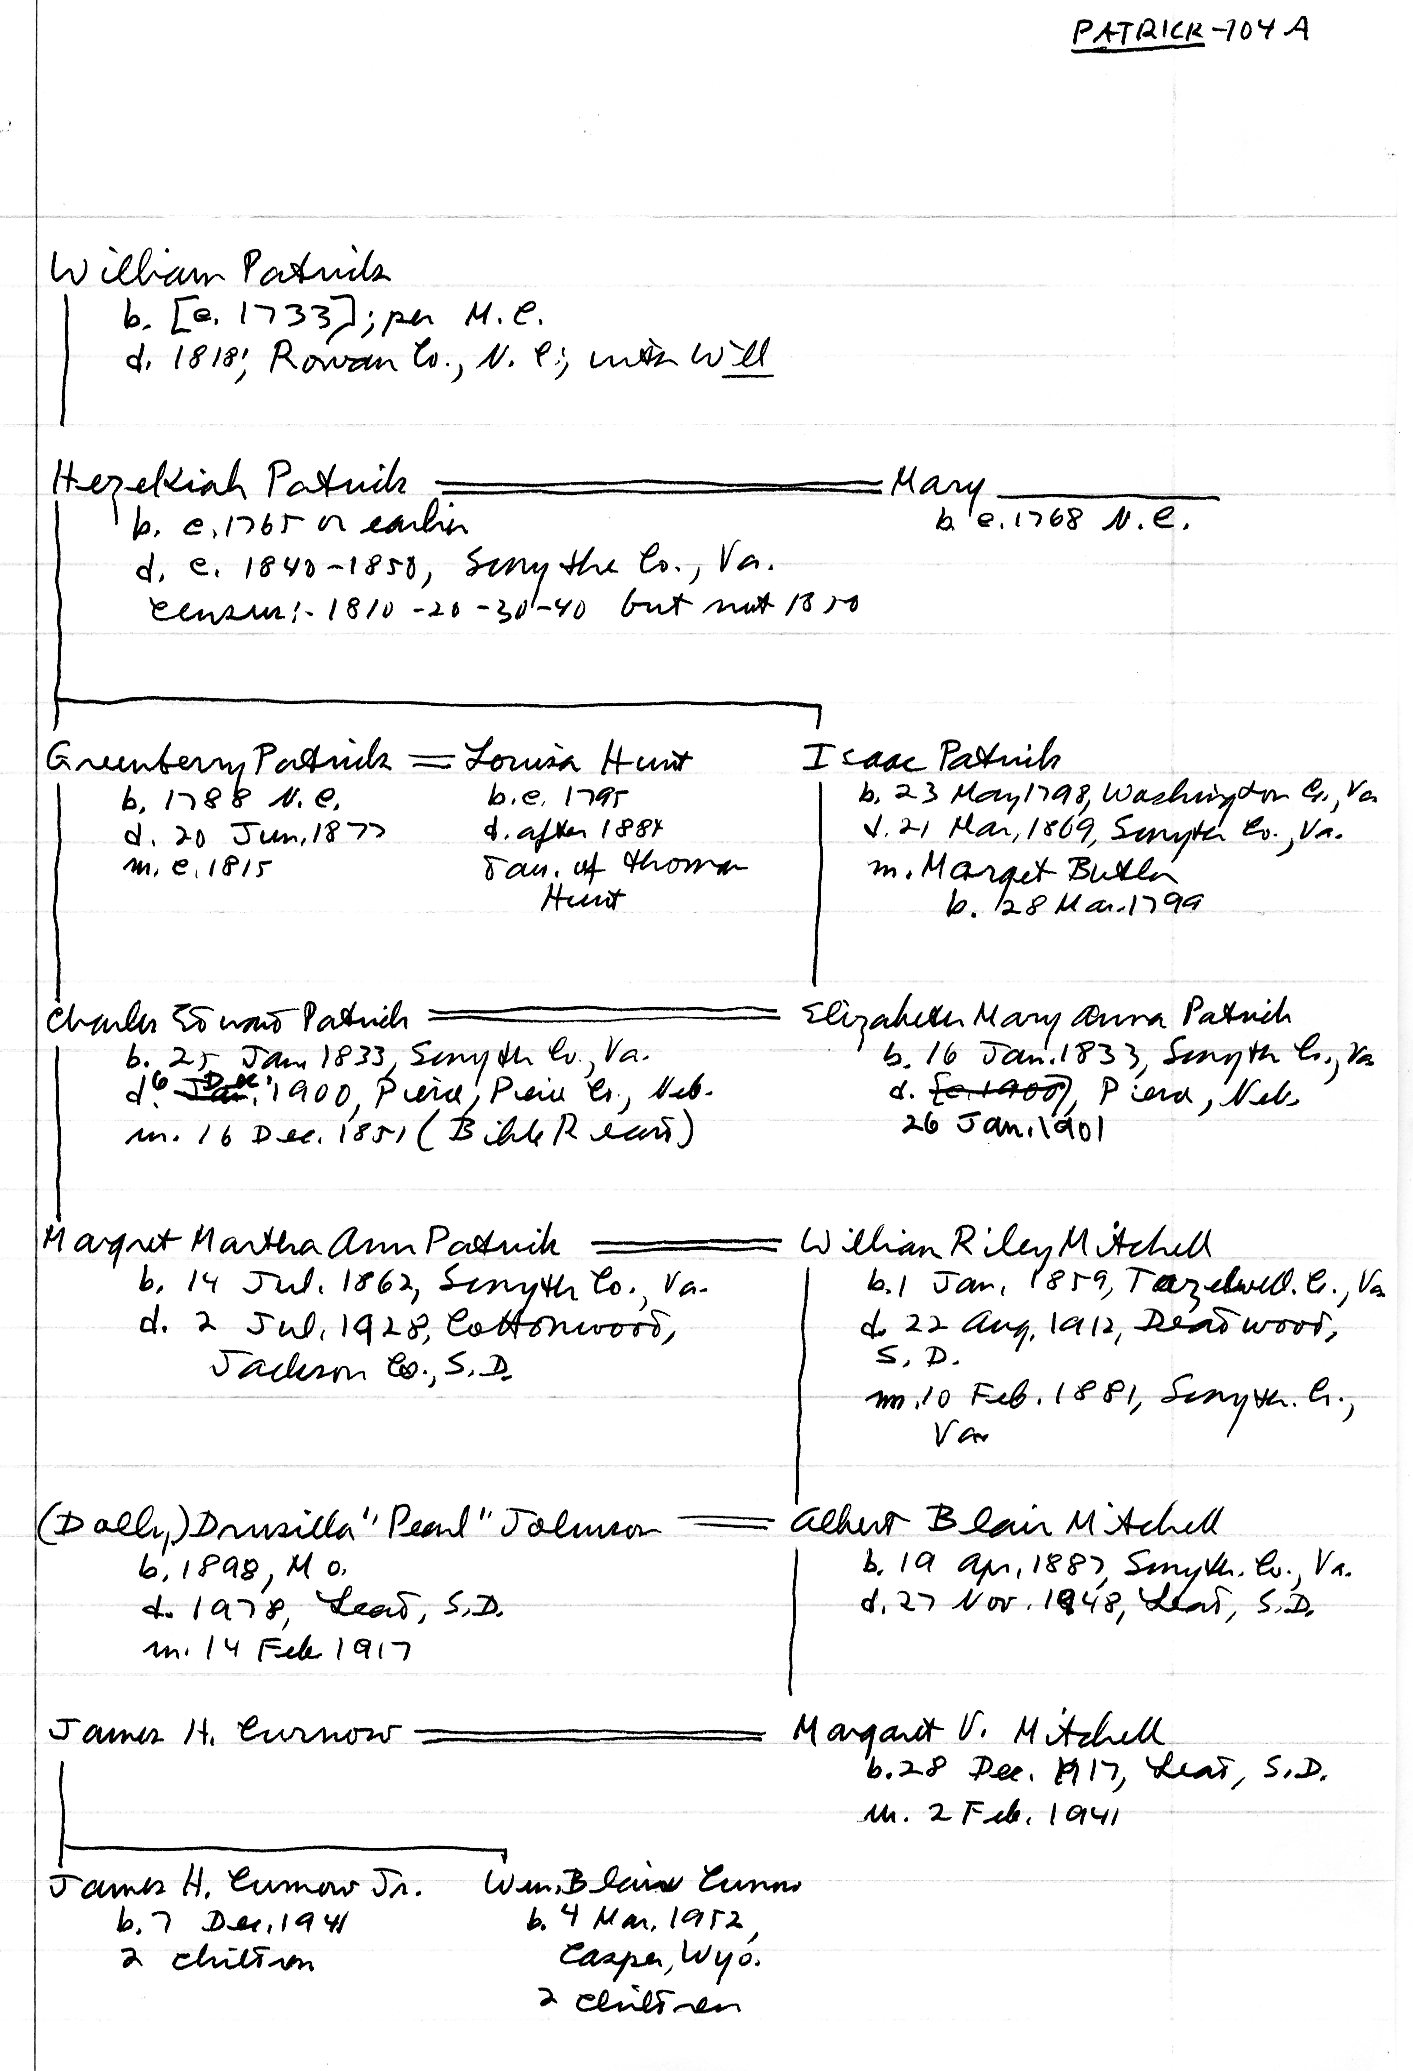 PATRICK-104 A
William Patrick
b. [c. 1733]; per M.C.
d. 1818; Rowan Co., N.C.; with Will
Hezekiah Patrick
b. c. 1765 or earlier
d. c. 1840-1850, Smythe Co., Va.
Census:- 1810-20-30-40 but not 1850
Mary
b. c. 1768 N.C.
Greenberry Patrick = Louisa Hunt
b. 1788 N.C.
d. 20 Jun. 1877
m. c. 1815
b. c. 1795
d. after 1884
Dau. of Thomas
Hunt
Isaac Patrick
b. 23 May 1798, Washington Co., Va
d. 21 Mar. 1869, Smyth Co., Va.
m. Marget Butler
b. 28 Mar. 1799
Charles Edward Patrick
b. 25 Jan. 1833, Smyth Co., Va.
d. 6 Jan. Dec. 1900, Pierce, Pierce Co., Neb.
m. 16 Dec. 1851 (Bible Record)
Elizabeth Mary Anna Patrick
b. 16 Jan. 1833, Smyth Co., Va
d. [c. 1900], Pierce, Neb.
26 Jan. 1901
Margret Martha Ann Patrick
b. 14 Jul. 1862, Smyth Co., Va.
d. 2 Jul. 1928, Cottonwood,
Jackson Co., S.D.
William Riley Mitchell
b. 1 Jan. 1859, Tazelwell. Co., Va
d. 22 Aug. 1912, Deadwood,
S.D.
m. 10 Feb. 1881, Smyth. Co.,
Va
(Dolly) Drusilla "Pearl" Johnson
b. 1898, Mo.
d. 1978, Lead, S.D.
m. 14 Feb 1917
Albert Blair Mitchell
b. 19 Apr. 1887, Smyth. Co., Va.
d. 27 Nov. 1948, Lead, S.D.
James H. Curnow
Margaret V. Mitchell
b. 28 Dec. 1917, Lead, S.D.
m. 2 Feb. 1941
James H. Curnow Jr.
b. 7 Dec. 1941
2 children
Wm. Blair Curnow
b. 4 Mar. 1952,
Casper, Wyo.
2 children